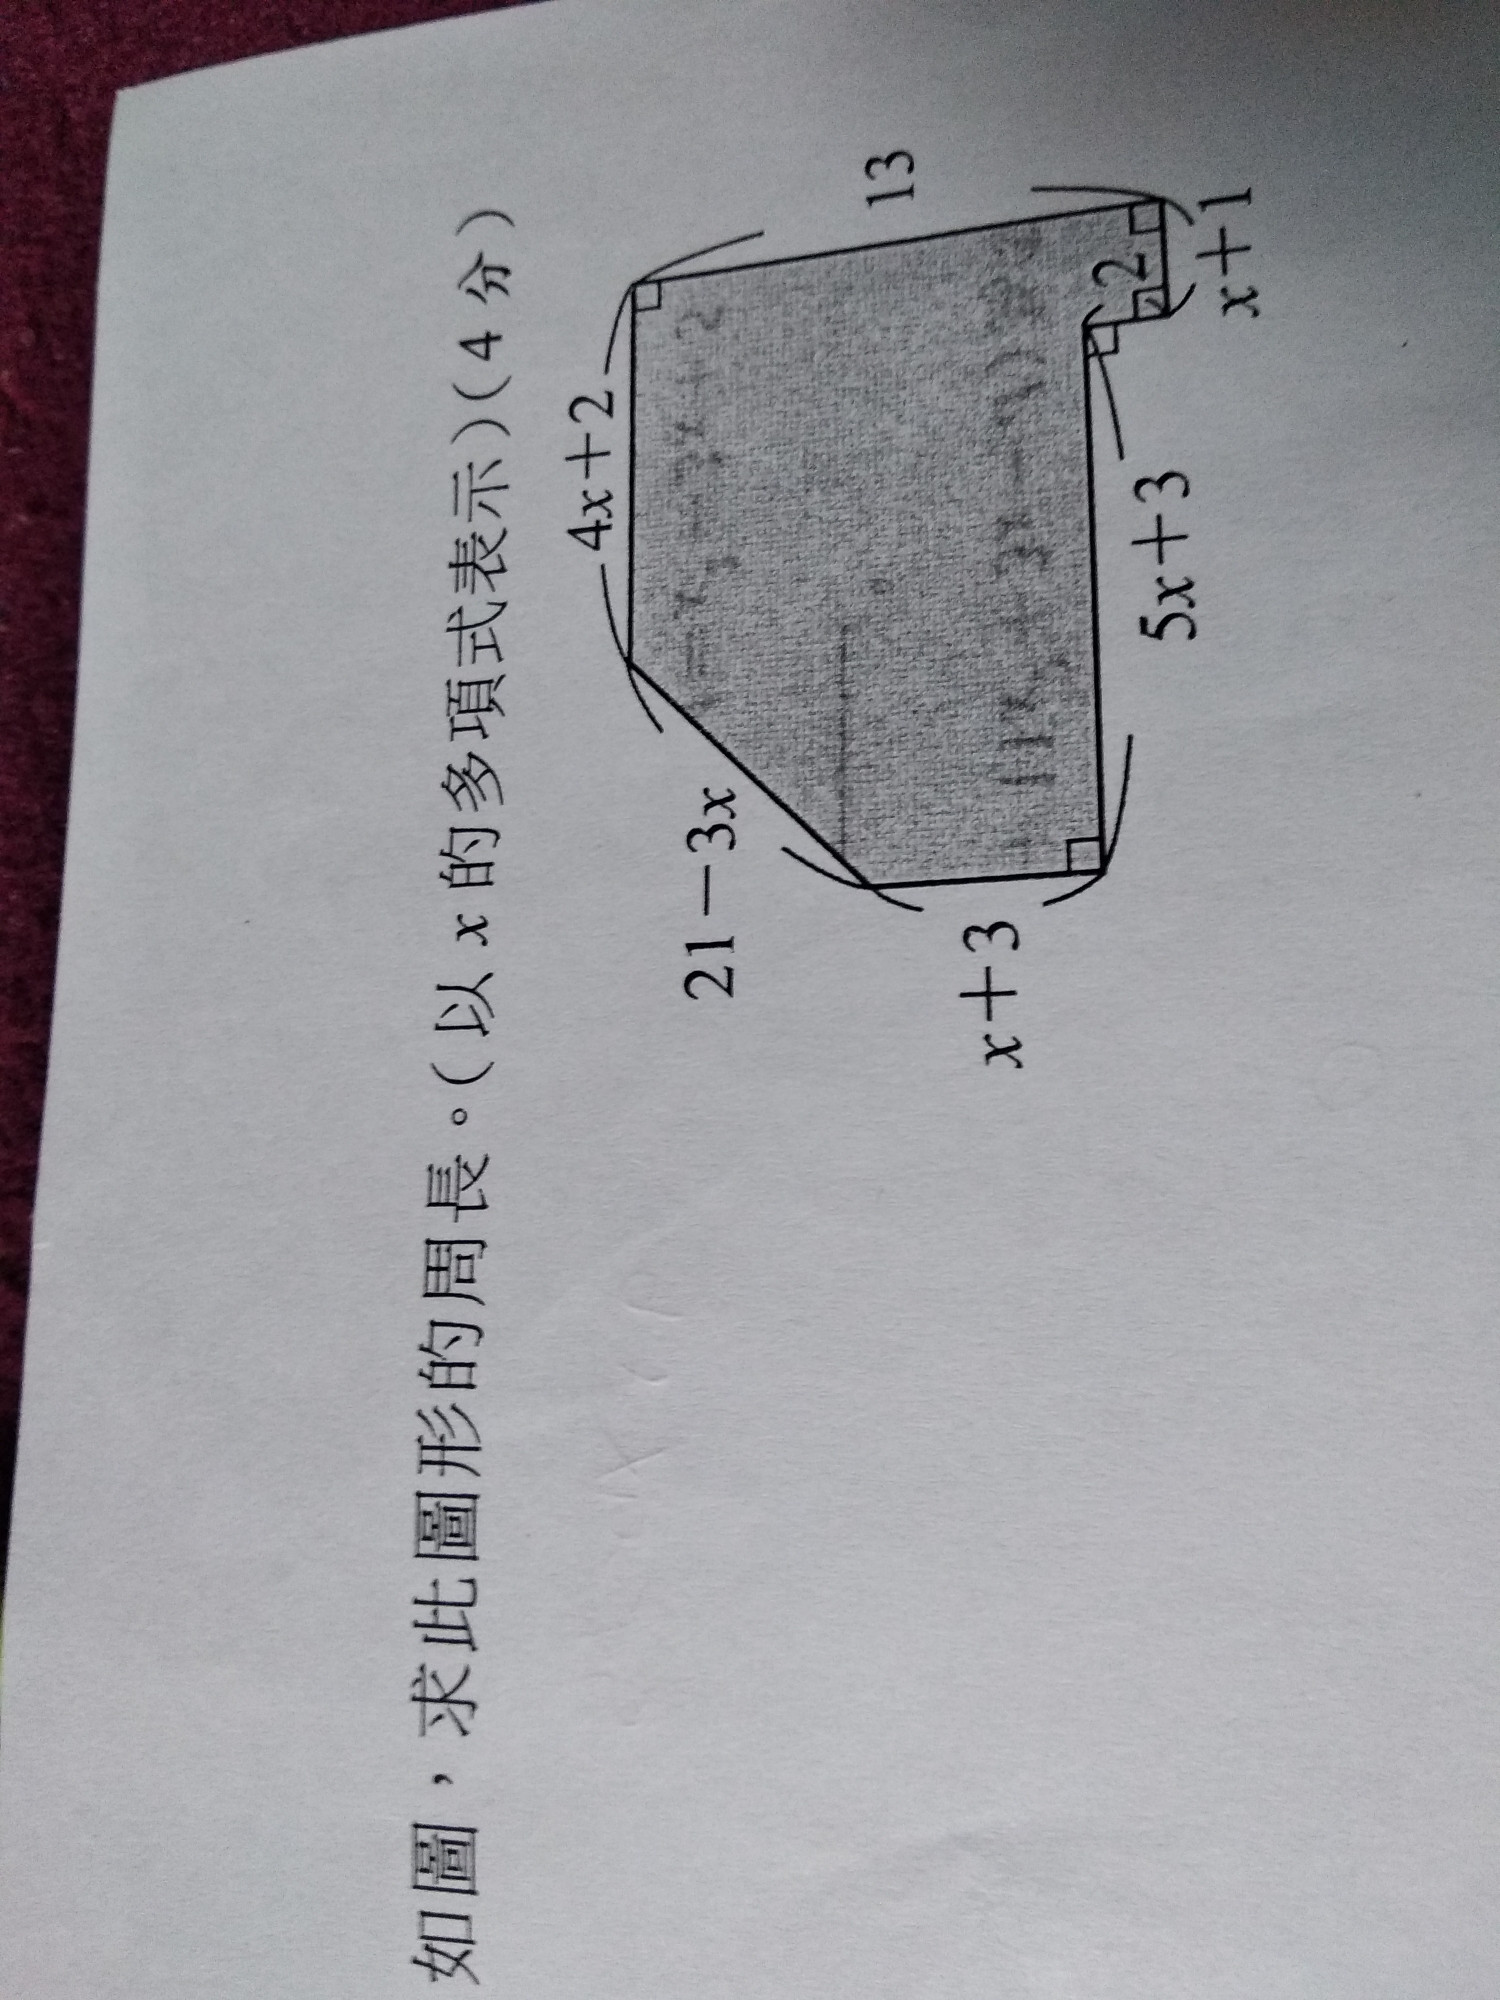 如圖，求此圖形的周長。(以 x 的多項式表示)(4 分)
4x+2
21-3x
13
x+3
2
5x+3
x+1